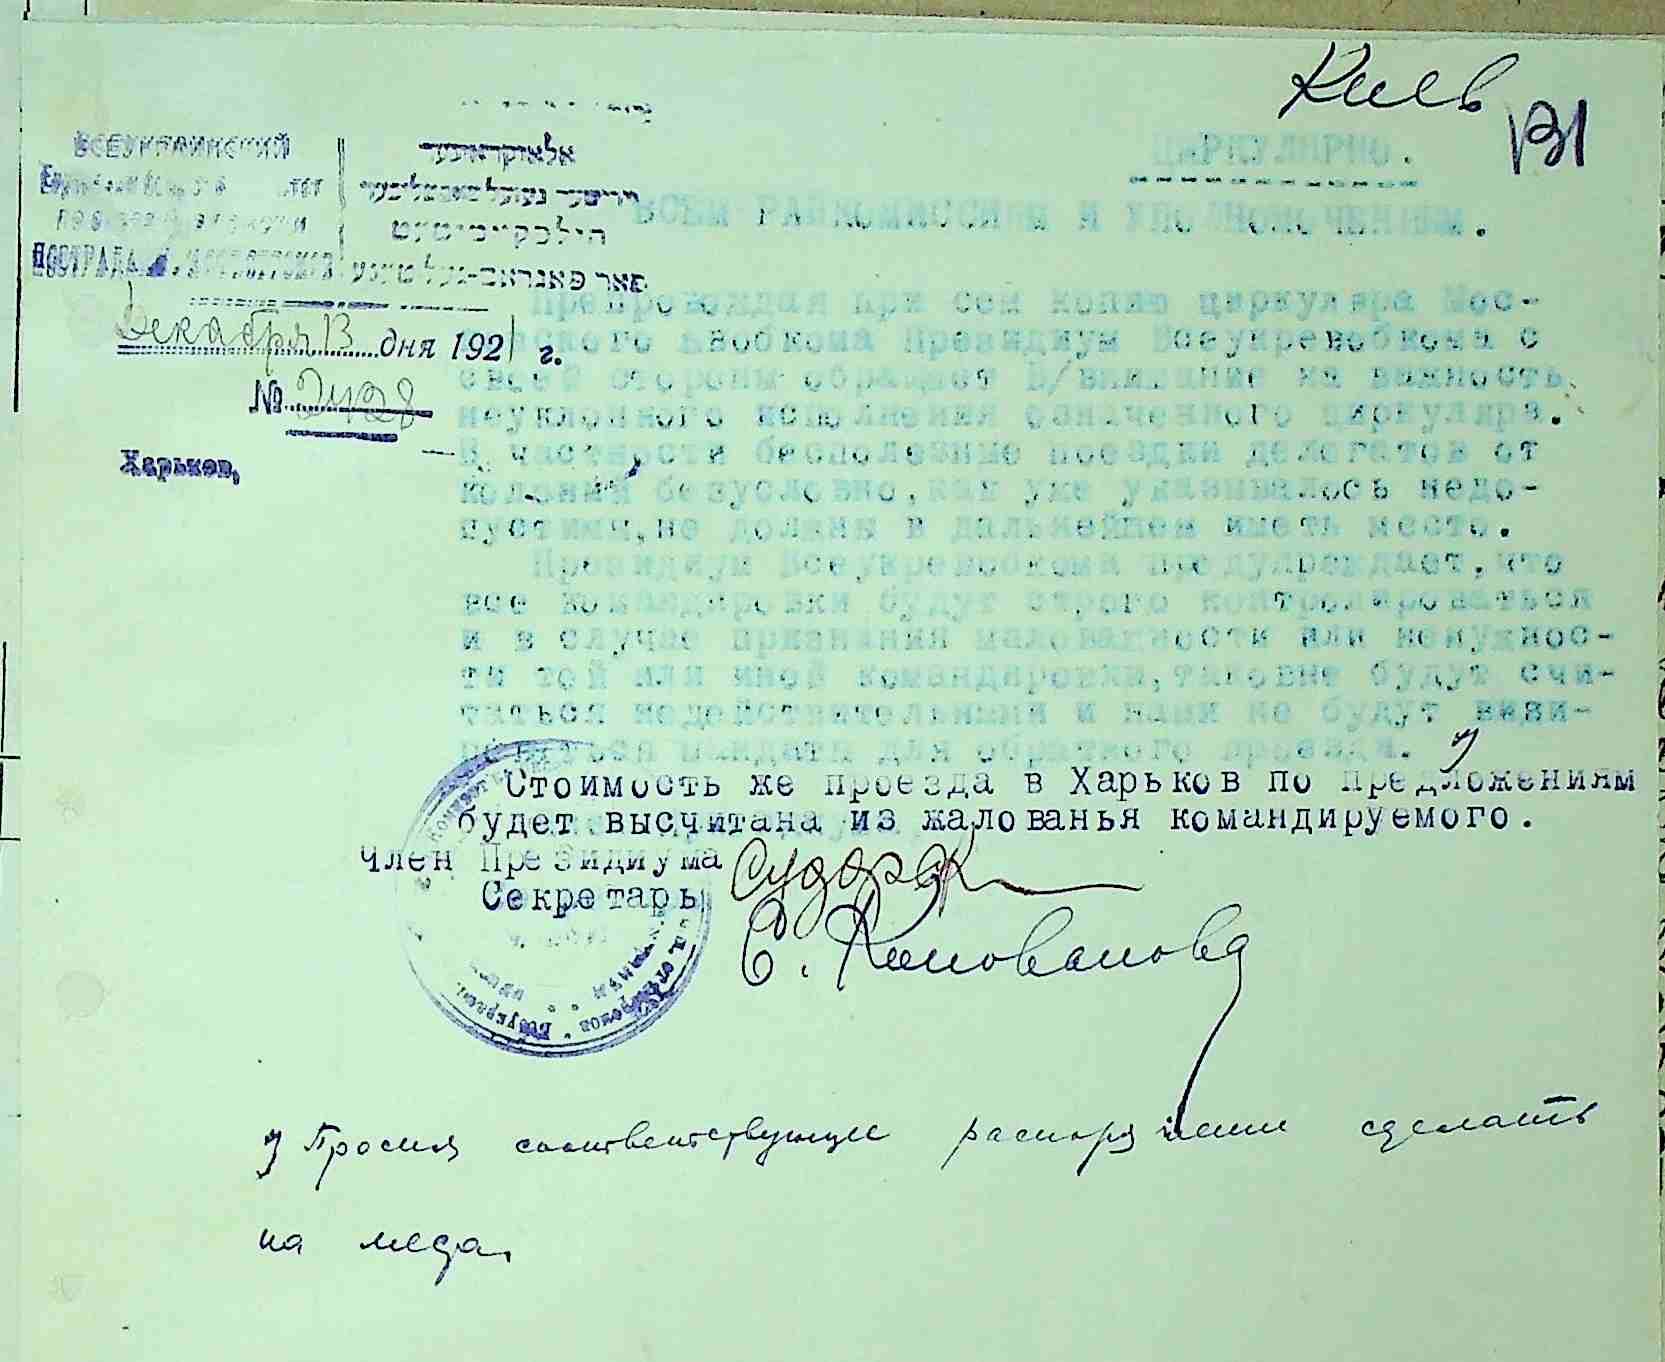 Киев
131
ЦИРКУЛЯРНО.
ВСЕМ РАЙКОМИССИЯМ И УПОЛНОМОЧЕННЫМ.
ВСЕУКРАИНСКИЙ
אלאוקראינער
יידישער געזעלשאפטלעכער
הילפסקאמיטעט
פאר פאגראם-געליטענע
Декабря 13 дня 1921 г.
№ 2428
Харьков,
Препровождая при сем копию циркуляра Мос-
ковского Евобкома Президиум Всеукревобкома с
своей стороны обращает В/внимание на важность
неуклонного исполнения означенного циркуляра.
В частности бесполезные поездки делегатов от
колоний безусловно, как уже указывалось недо-
пустимы, не должны в дальнейшем иметь место.
Президиум Всеукревобкома предупреждает, что
все командировки будут строго контролироваться
и в случае признания маловажности или ненужнос-
ти той или иной командировки, таковые будут счи-
таться недействительными и нами не будут визи-
роваться мандаты для обратного проезда.
Стоимость же проезда в Харьков по предложениям
будет высчитана из жалованья командируемого.
Член Президиума
Секретарь
Просим соответствующее распоряжение сделать
на места.